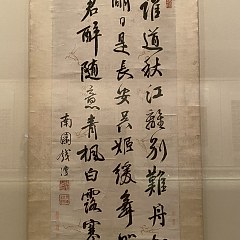 誰道秋江離別難舟
明日是長安吳姬緩舞留
君醉隨意青楓白露寒
南園錢灃